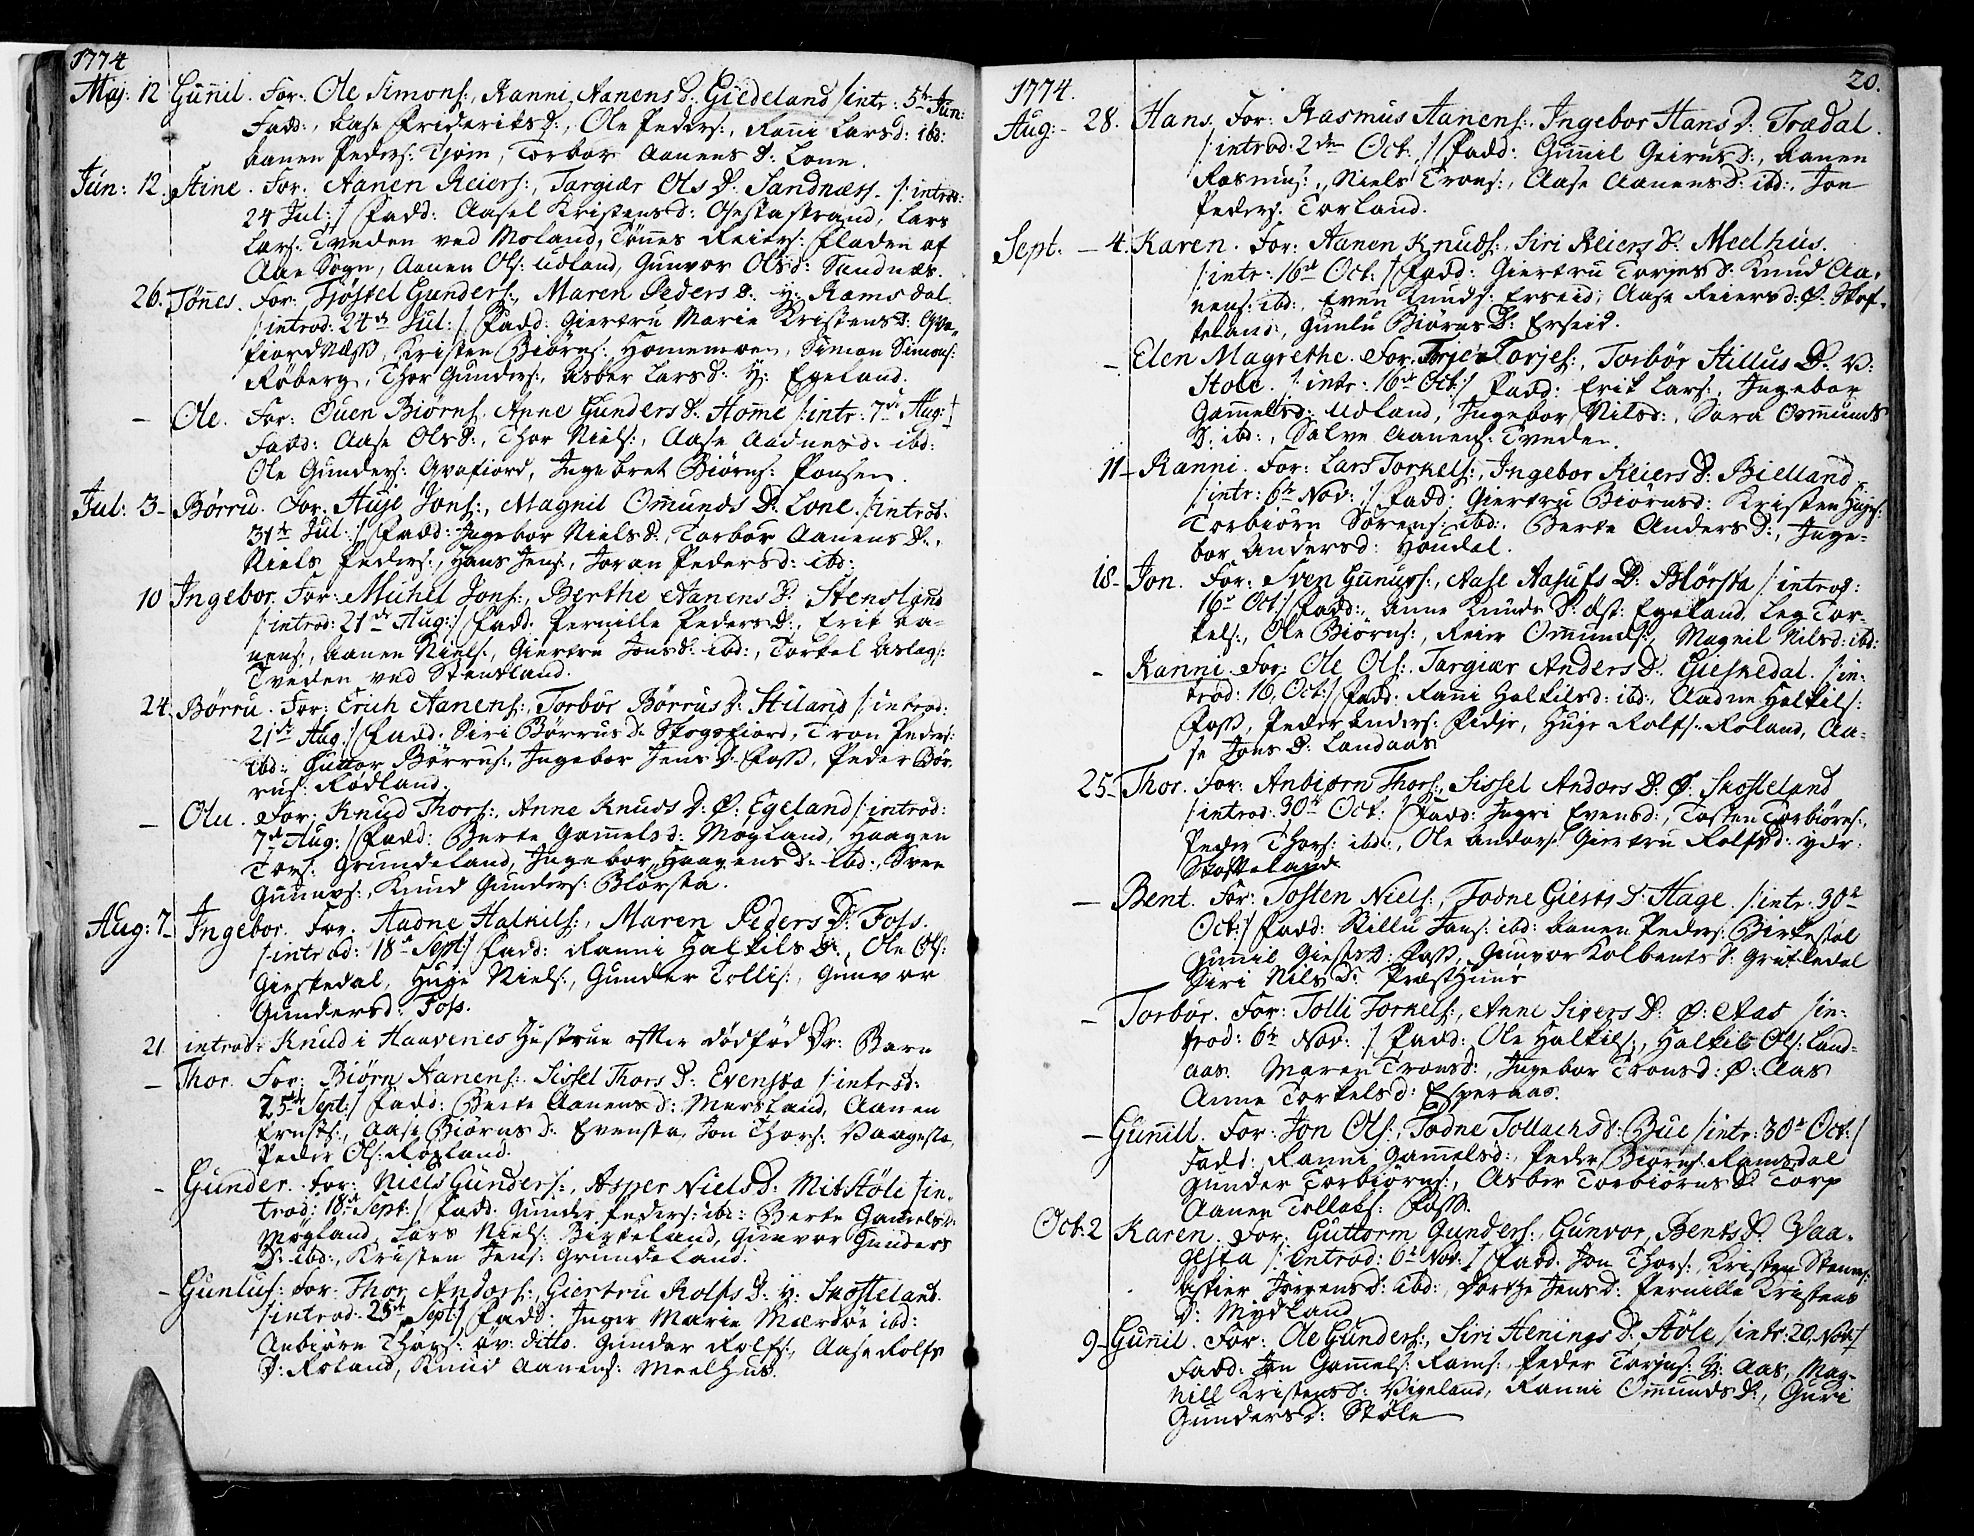 1774
Maj: 12 Gunil. For: Ole Simons:, Ranni Aanens D: Giedeland /:intr: 5te Jun:
Fadd:, Aase Frideriks D:, Ole Peders:, Ranni Larsd: ibd:
Aanen Peders: Tjom, Torbor Aanens D: Lone.
Jun: 12. Stine. For: Aanen Reiers:, Targiær Ols D: Sandnæss. /:introd:
24 Jul:/ Fadd: Aasel Kristensd: Lars
Lars: Tveden ved Moland, Tønnes Reiers: Fladen af
Aae Sogn, Aanen Ols: Udland, Gunvor Olsd: Sandnæs.
26. Tønnes. For: Tjøstel Gunders:, Maren Peders D: Y: Ramsdal
/:introd: 24de Jul:/ Fadd: Giertru Marie Kristensd: Ova-
fiordnæss, Kristen Biørns: Homemoen, Simon Simons:
Røberg, Thor Gunders:, Asber Larsd: Y: Egeland.
– Ole. For: Ouen Biørns: Anne Gunders D: Homme /:intr: 7de Aug:/
Fadd: Aase Ols D:, Thor Niels:, Aase Aadnesd: ibd:
Ole Gunders: Ovafiord, Ingebret Biørns:
Jul: 3– Børru. For: Huje Jons:, Magnil Omunds D: Lone. /:introd:
31te Jul:/ Fadd: Ingebor Niels D:, Torbor Aanens D:,
Niels Peders:, Hans Jens:, Joran Pedersd: ibd:
10 Ingebor. For: Michel Jons:, Berthe Aanens D: Stensland
/:introd: 21de Aug:/ Fadd: Pernille Peders D:, Erik Aa-
nens:, Aanen Niels:, Giertru Jonsd: ibd:, Torkel Aslags:
Tveden ved Stensland.
24. Børru. For: Erich Aanens:, Torbor Børrus D: Stiland /:introd:
21de Aug:/ Fadd: Siri Børrus D: Skogsfiord, Tron Peders:
ibd:, Guttor Børrus:, Ingebor Jens D: Foss, Peder Bør-
rus: Rødland.
– Olu. For: Knud Thors:, Anne Knuds D: Ø: Egeland /:introd:
7de Aug:/ Fadd: Berte Gamelsd: Mogland, Haagen
Tors: Grundeland, Ingebor Haagens D: ibd:, Sven
Gunuvs:, Knud Gunders: Blørsta.
Aug: 7– Ingebor. For: Aadne Halkils:, Maren Peders D: Foss.
/:introd: 18de Sept:/ Fadd: Ranni Halkils D:, Ole Ols:
Gieskedal, Huge Niels:, Gunder Tollis:, Gunvor
Gundersd: Foss.
21 introd: Knud i Haavenes Hustrue efter dødfød Dr: Barn
– Thor. For: Biørn Aanens:, Sissel Thors D: Evensta /:introd:
25de Sept:/ Fadd: Berte Aanensd: Mersland, Aanen
Ernsts:, Aase Biørns D: Evensta, Jon Thors: Vaagesta,
Peder Ols: Roeland.
– Gunder. For: Niels Gunders:, Asper Niels D: Mitstøle /:in-
trod: 18de Sept:/ Fadd: Gunder Peders: ibd: Berte Gamelsd:
Mogland, Lars Niels: Birkeland, Gunvor Gunders
D: ibd:, Kristen Jens: Grundeland.
– Gunlus: For: Thor Andors:, Giertru Rolfs D: Y: Skosteland.
/:introd: 25de Sept:/ Fadd: Inger Marie Mærdøe ibd:
Anbiørn Thors: ov: ditto. Gunder Rolfs:, Aase Rolfs
D: Roland, Knud Aanens: Meelhus.
20.
1774.
Aug:– 28. Hans. For: Rasmus Aanens:, Ingebor Hans D: Trædal.
/:introd: 2den Oct:/ Fadd: Gunnil Geirus D:, Aanen
Rasmus:, Niels Trons:, Aase Aanensd: ibd:, Jon
Peders: Torland.
Sept: – 4. Karen. For: Aanen Knuds:, Siri Reiers D: Meelhus.
/:intr: 16de Oct:/ Fadd: Giertru Torjesd: Knud Aa-
nens: ibd:, Even Knuds: Erseid, Aase Reiersd: Ø: Skos-
teland, Gunlu Biørns D: Erseid.
– Elen Magrethe. For: Torje Torjes:, Torbør Stillus D: V:
Støle. /:intr: 16de Oct:/ Fadd: Erik Lars:, Ingebor
Gamelsd: Udland, Ingebor Nilsd:, Sara Osmunds
D: ibd:, Salve Aanens: Tveden.
11– Ranni. For: Lars Torkels:, Ingebor Reiers D: Bielland
/:intr: 6te Nov:/ Fadd: Giertru Biørnsd: Kristen Hujes:
Torbiørn Sørens: ibd:, Berte Anders D:, Inge-
bor Andersd: Houdal.
18– Jon. For: Sven Gunuvs:, Aase Aasufs D: Blørsta /:introd:
16de Oct:/ Fadd:, Anne Knuds D: øst: Egeland, Leg Tor-
kels:, Ole Biørns:, Reier Omunds:, Magnil Nilsd: ibd:
– Ranni. For: Ole Ols:, Targiær Anders D: Gieskedal. /:in-
trod: 16, Oct:/ Fadd: Ranni Halkilsd: ibd:, Aadne Halkils:
Foss, Peder Anders: Fidje, Huge Rolfs: Roland, Aa-
se Jons D: Landaas
25– Thor. For: Anbiørn Thors:, Sissel Andors D: Ø: Skosteland
/:introd: 30de Oct:/ Fadd: Ingri Evensd:, Tosten Torbiørns:,
Peder Thors: ibd:, Ole Andors: Giertru Rolfsd: ydr:
Skosteland.
– Bent. For: Tosten Niels:, Todne Giests D: Hage. /:intr: 30de
Oct:/ Fadd: Killu Jans: ibd: Aanen Peders: Birkestøl
Gunnil Giestsd: Foss, Gunvor Kolbents D:
Siri Nils D: Præsthuus
– Torbør. For: Tolli Torkels:, Anne Sivers D: Ø: Aas /:in-
trod: 6te Nov:/ Fadd: Ole Halkils:, Halkil Ols: Land-
aas. Maren Tronsd:, Ingebor Tronsd: Ø: Aas
Anne Torkelsd: Esperaas.
– Gunill. For: Jon Ols:, Todne Tollachs D: Bue /:intr: 30de Oct:/
Fadd: Ranni Gamelsd:, Peder Biørns: Ramsdal
Gunder Torbiørns:, Asber Torbiørns D: Torp
Aanen Tollaks: Foss.
Oct: 2 Karen. For: Guttorm Gunders:, Gunvor, Bents D: Vaa-
gesta /:introd: 6te Nov:/ Fadd: Jon Thors:, Kristen Stens:
Jørgensd: ibd:, Jensd: Pernille Kristens
D: Mydland
9– Gunnil. For: Ole Gunders:, Siri Henings D: Støle /:intr: 20 Nov:/
Fadd: Jon Gamels: Rams:, Peder Torjus: Y: Aas, Mag-
nill Kristensd: Vigeland, Ranni Omunds D:, Guri
Gundersd: Støle